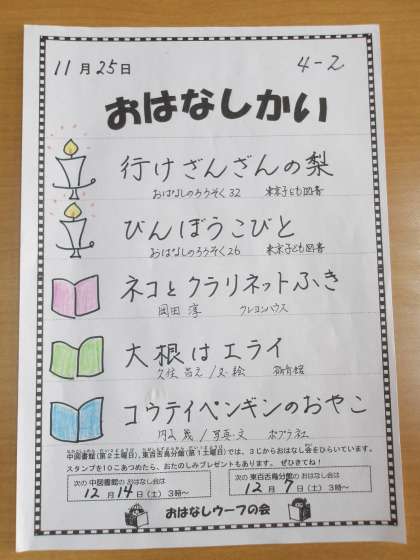 11月25日
4-2
おはなしかい
行けざんざんの梨
おはなしのろうそく32 東京子ども図書
びんぼうこびと
おはなしのろうそく26 東京子ども図書
ネコとクラリネットふき
岡田 淳 クレヨンハウス
大根はエライ
久住昌之/文・絵 福音館
コウテイペンギンのおやこ
内山 晟/写真・文 ポプラ社
中図書館(第2土曜日)、東百舌鳥分館(第1土曜日)では、3じからおはなし会をひらいています。
スタンプを10こあつめたら、おたのしみプレゼントもあります。 ぜひきてね!
次の 中図書館の おはなし会は
12月14日(土) 3時〜
次の 東百舌鳥分館の おはなし会は
12月7日(土) 3時〜
おはなしウーフの会